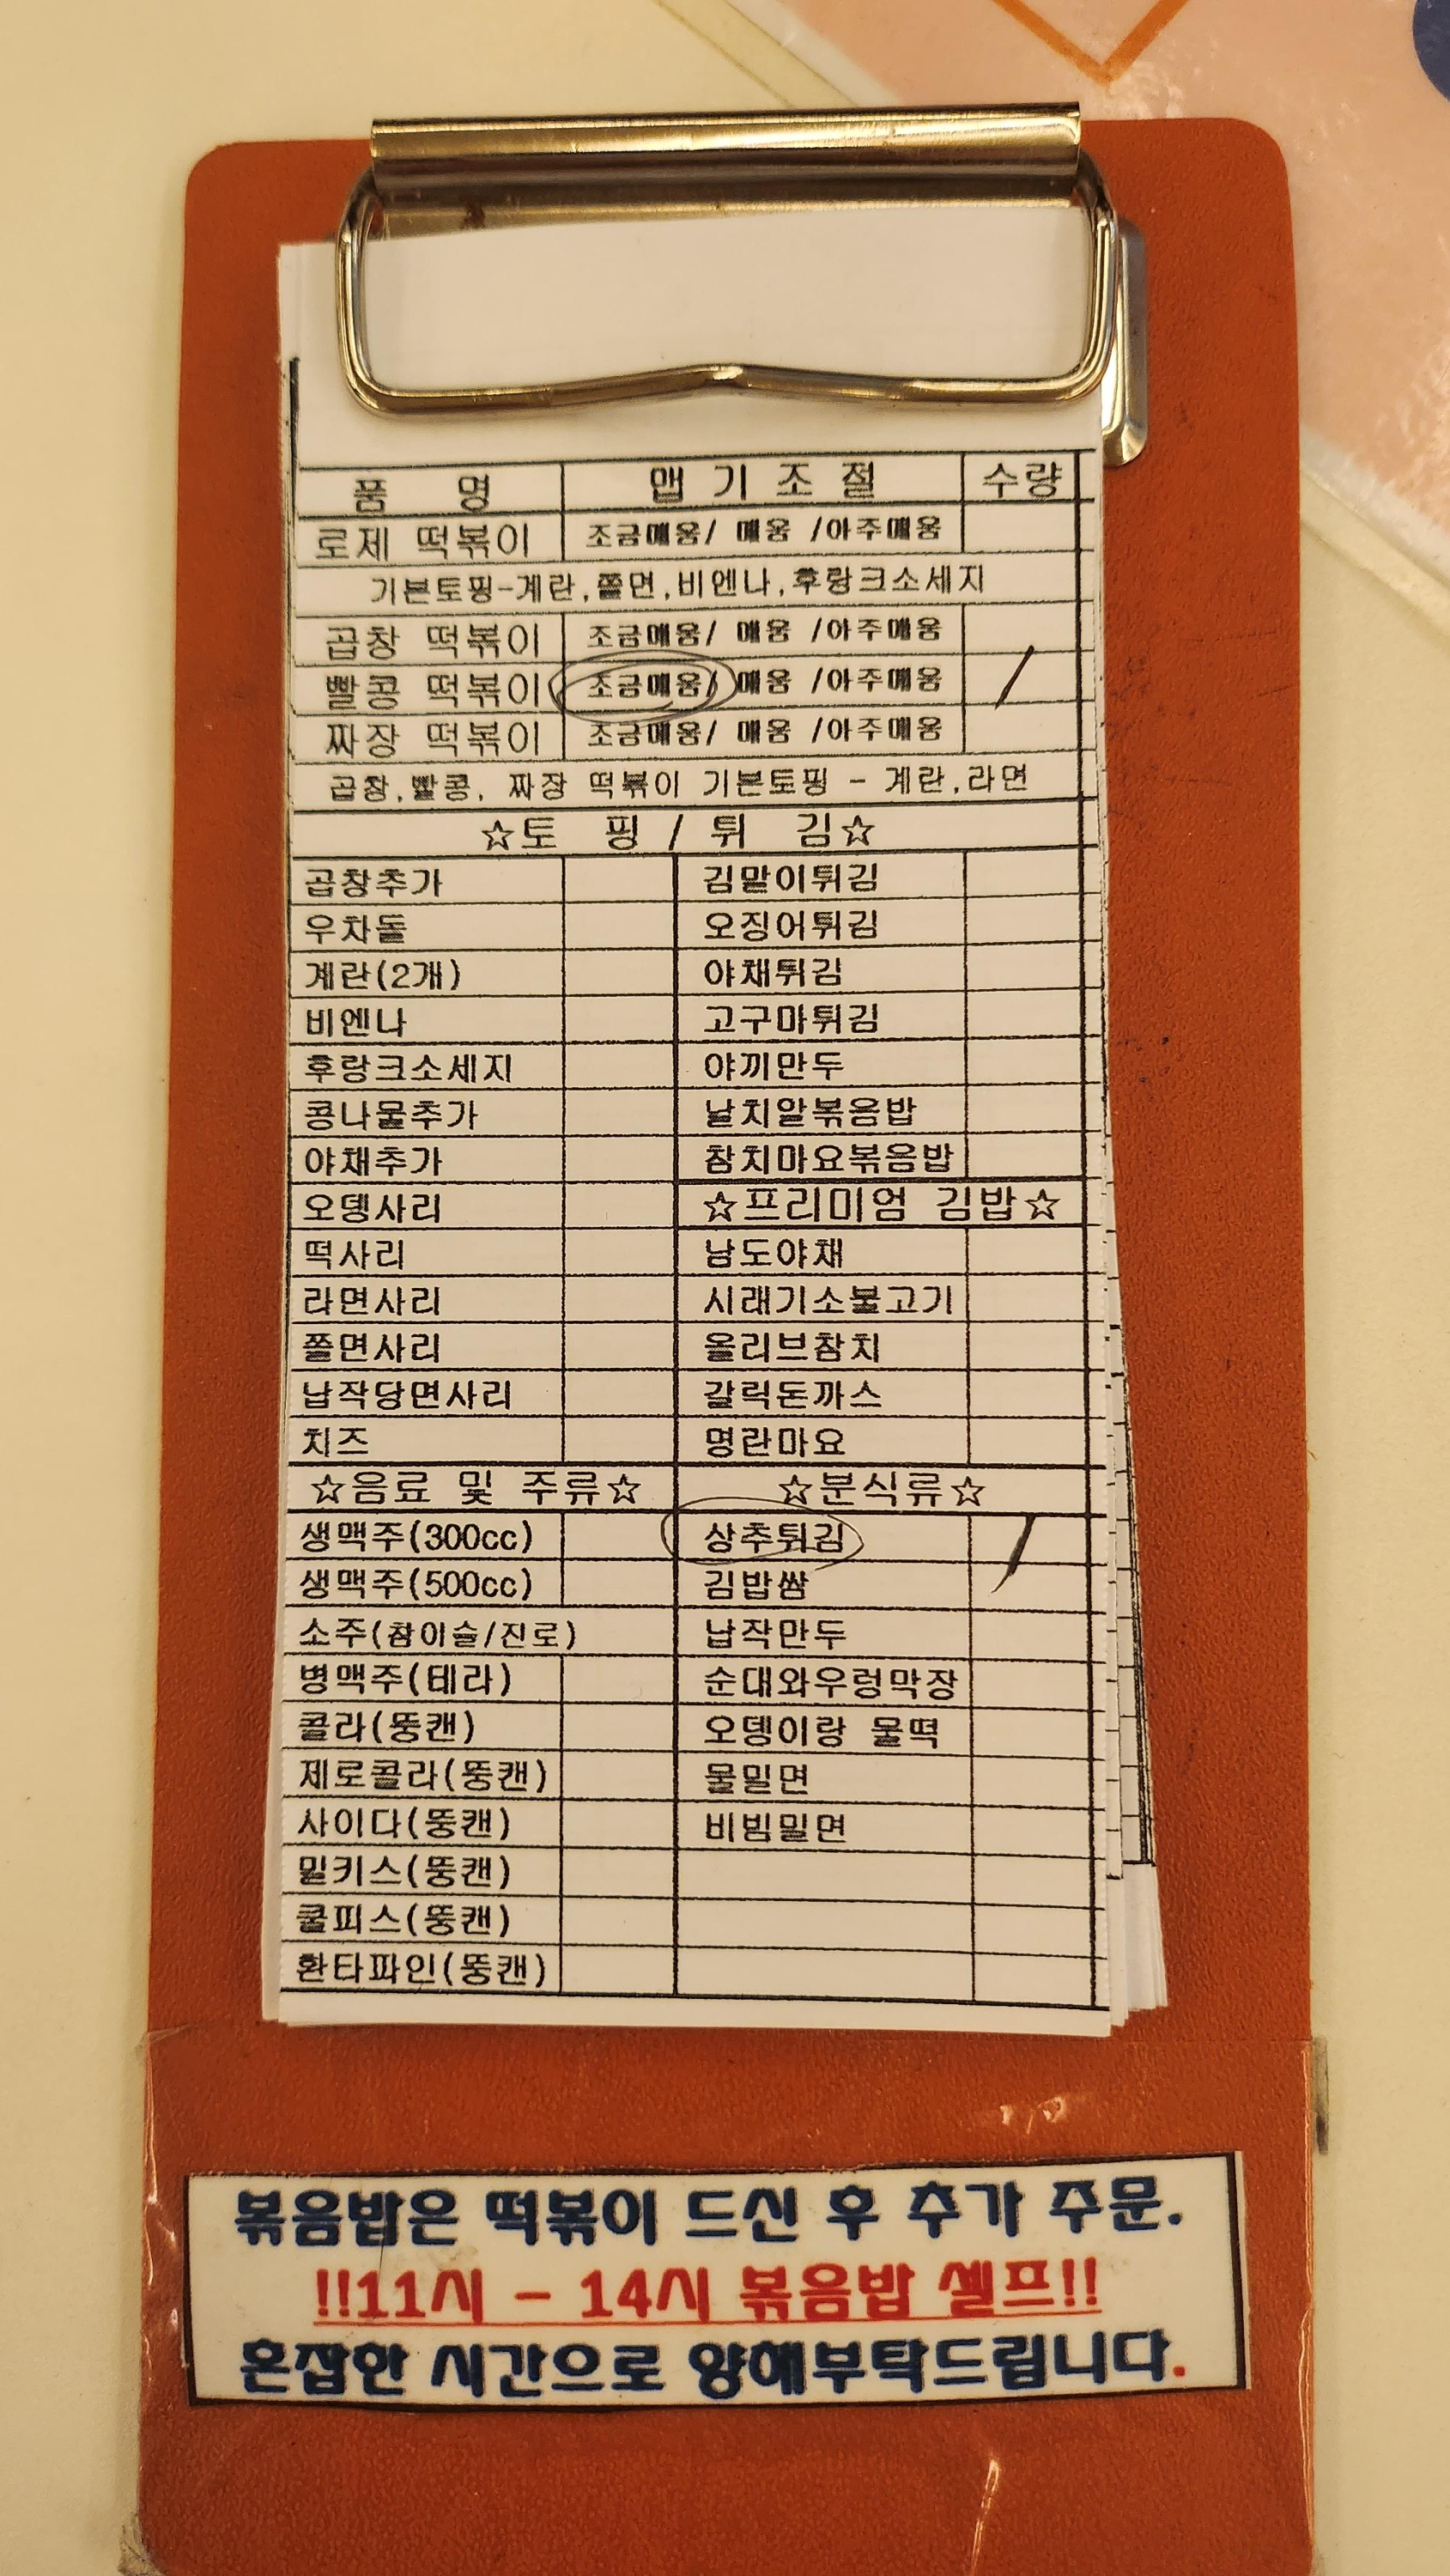 품 명 맵 기 조 절 수량
로제 떡볶이 조금매움/ 매움 /아주매움
기본토핑-계란,쫄면,비엔나,후랑크소세지
곱창 떡볶이 조금매움/ 매움 /아주매움
빨콩 떡볶이 조금매움/ 매움 /아주매움 /
짜장 떡볶이 조금매움/ 매움 /아주매움
곱창,빨콩, 짜장 떡볶이 기본토핑 - 계란,라면
☆토 핑 / 튀 김☆
곱창추가 김말이튀김
우차돌 오징어튀김
계란(2개) 야채튀김
비엔나 고구마튀김
후랑크소세지 야끼만두
콩나물추가 날치알볶음밥
야채추가 참치마요볶음밥
오뎅사리 ☆프리미엄 김밥☆
떡사리 남도야채
라면사리 시래기소불고기
쫄면사리 올리브참치
납작당면사리 갈릭돈까스
치즈 명란마요
☆음료 및 주류☆ ☆분식류☆
생맥주(300cc) 상추튀김 /
생맥주(500cc) 김밥쌈
소주(참이슬/진로) 납작만두
병맥주(테라) 순대와우렁막장
콜라(뚱캔) 오뎅이랑 물떡
제로콜라(뚱캔) 물밀면
사이다(뚱캔) 비빔밀면
밀키스(뚱캔)
쿨피스(뚱캔)
환타파인(뚱캔)
볶음밥은 떡볶이 드신 후 추가 주문.
!!11시 - 14시 볶음밥 셀프!!
혼잡한 시간으로 양해부탁드립니다.